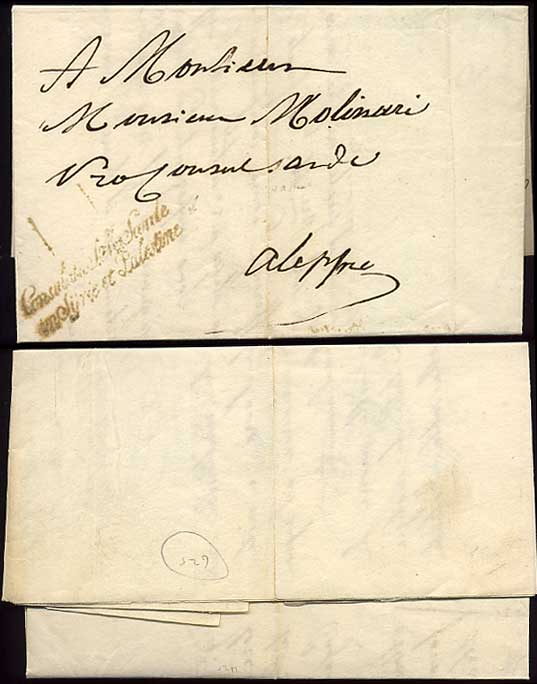 A Monsieur
Monsieur Molinari
Vice Consul Sarde
Aleppe
Consulat de Terre Sainte
en Syrie et Palestine
529